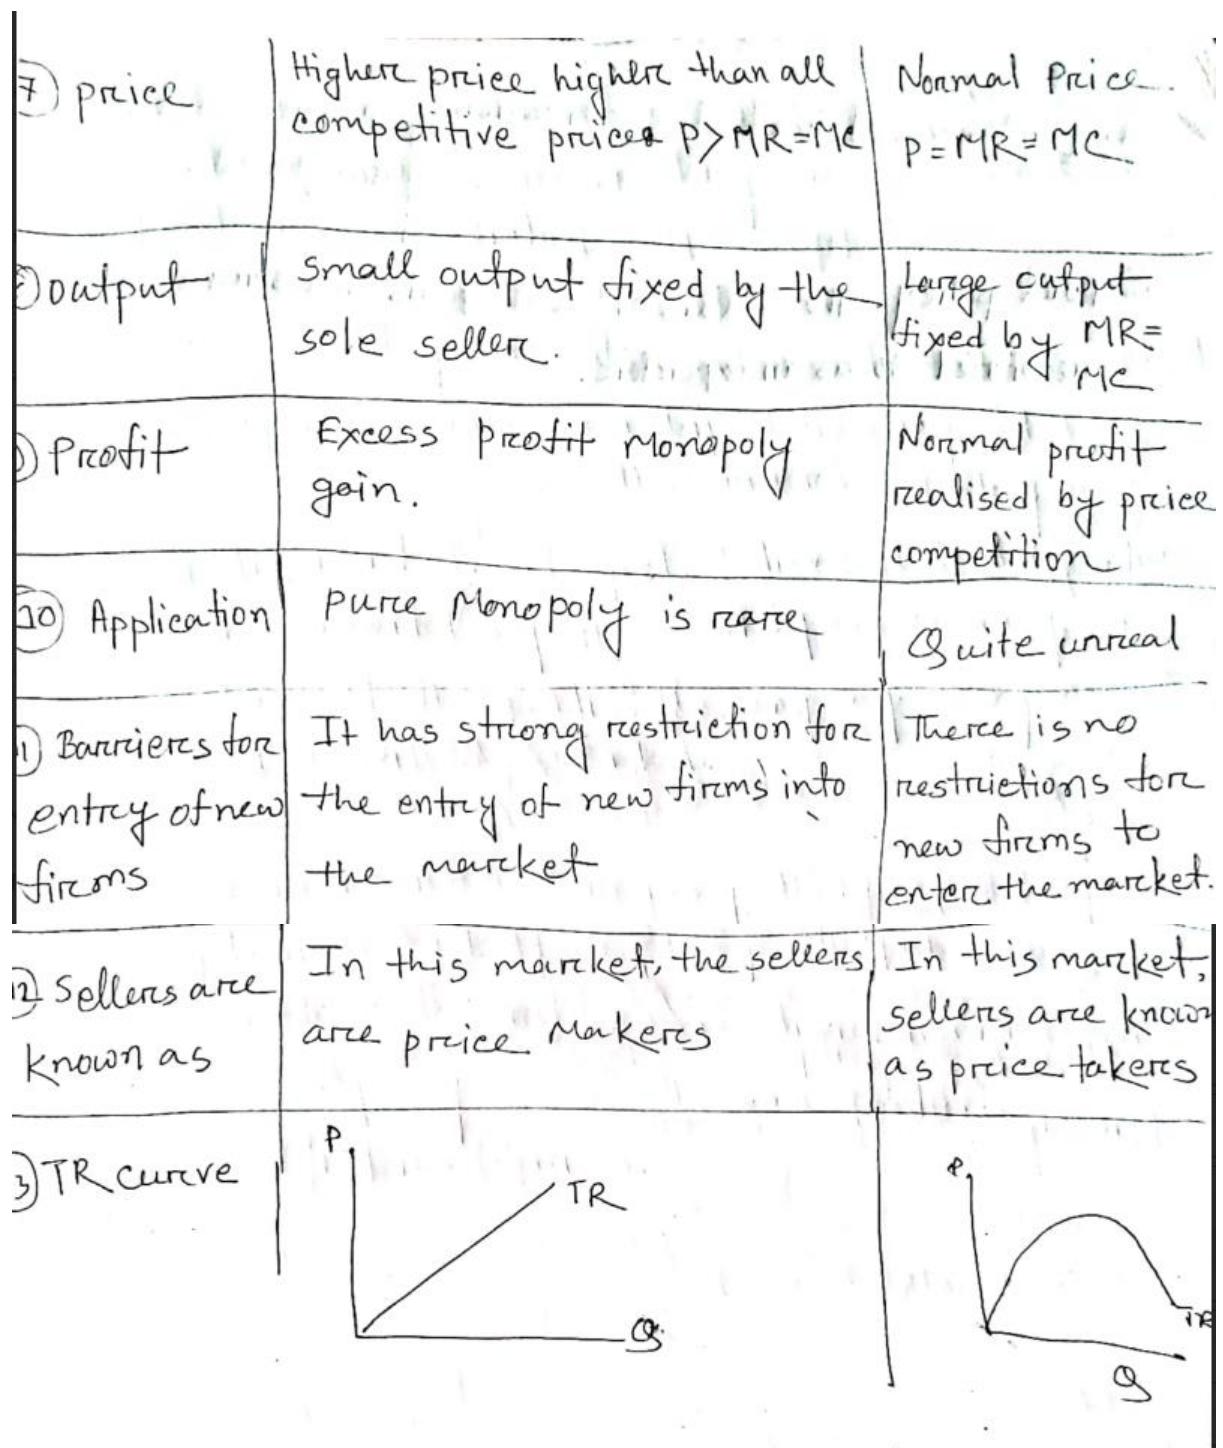 7 price
Higher price higher than all
competitive prices P>MR=MC
Normal Price.
P=MR=MC
output
Small output fixed by the
sole seller.
Large output
fixed by MR=
MC
Profit
Excess profit Monopoly
gain.
Normal profit
realised by price
competition
10 Application
Pure Monopoly is rare
Quite unreal
1 Barriers for
entry of new
firms
It has strong restriction for
the entry of new firms into
the market
There is no
restrictions for
new firms to
enter the market.
12 Sellers are
known as
In this market, the sellers
are price Makers
In this market,
sellers are known
as price takers
3 TR curve
P
TR
Q
P
TR
Q